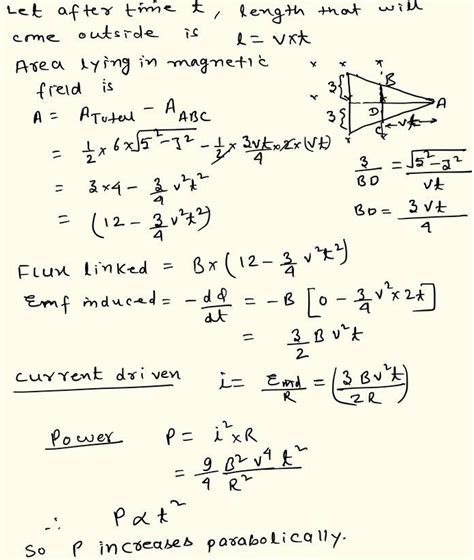 Let after time t, length that will
come outside is l = v×t
Area lying in magnetic
field is
A = A_Total − A_ABC
= 1/2 × 6 × √(5²−3²) − 1/2 × 3vt/4 × 2 × (vt)
= 3×4 − 3/4 v²t²
= (12 − 3/4 v²t²)
x x x
3{ B
x A
3{ D
C vt
x x x
3/BD = √(5²−3²)/vt
BD = 3vt/4
Flux linked = B×(12 − 3/4 v²t²)
Emf induced = −dφ/dt = −B [0 − 3/4 v² × 2t]
= 3/2 B v²t
current driven i = Emd/R = (3Bv²t/2R)
Power P = i² × R
= 9/4 B² v⁴ t²/R²
∴ P ∝ t²
So P increases parabolically.